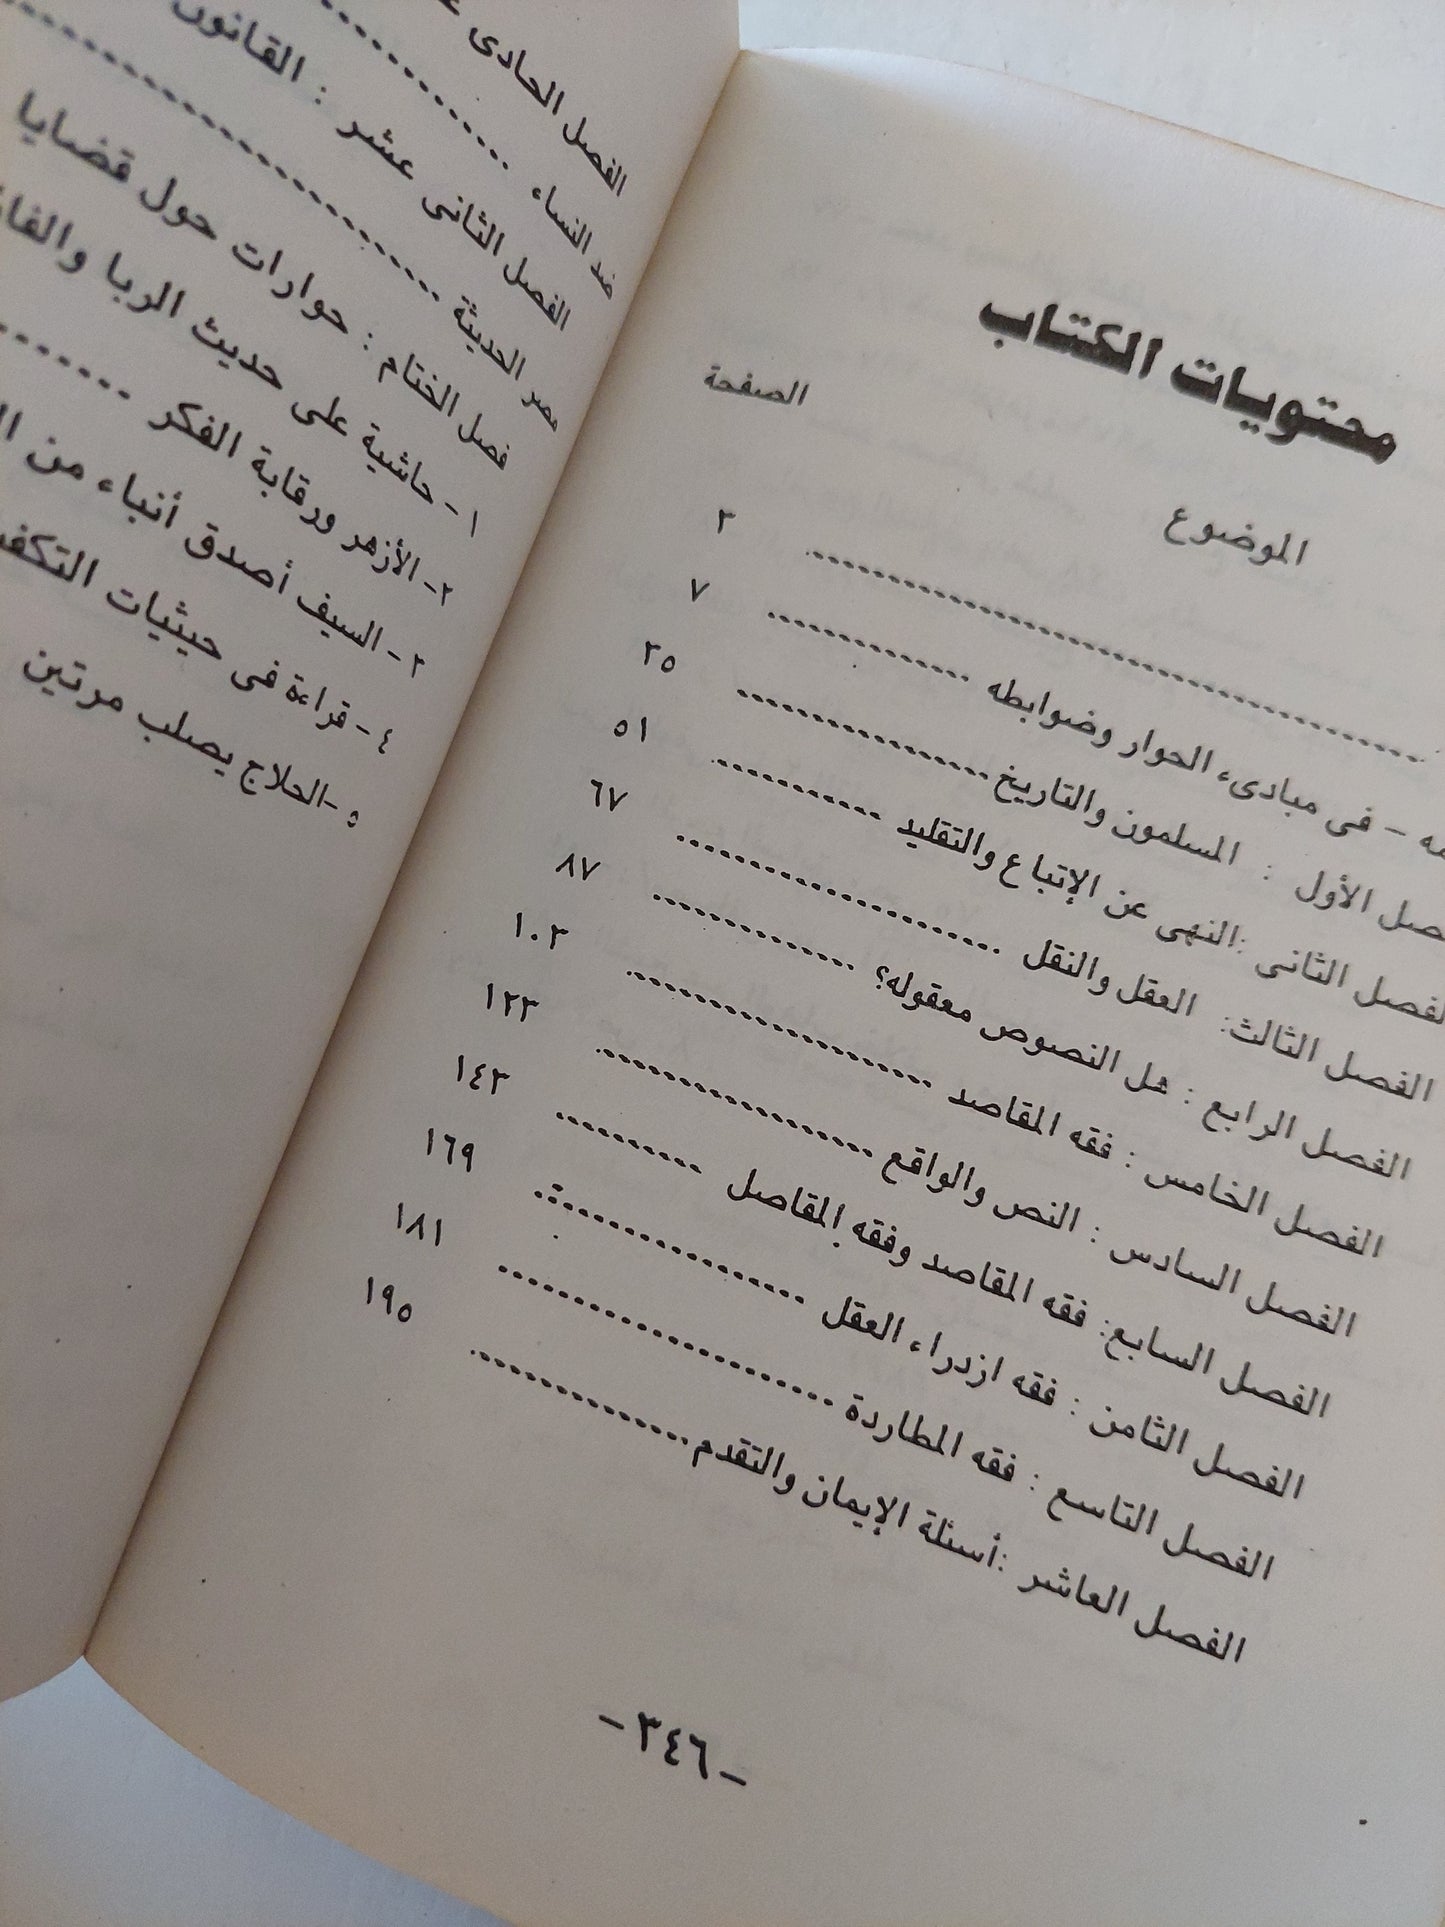 محتويات الكتاب
الموضوع الصفحة
........................................ ٣
- فى مبادىء الحوار وضوابطه .............. ٧
الأول : المسلمون والتاريخ .................. ٣٥
الفصل الثانى :النهى عن الإتباع والتقليد ............ ٥١
الفصل الثالث: العقل والنقل ...................... ٦٧
الفصل الرابع : هل النصوص معقوله؟ .............. ٨٧
الفصل الخامس : فقه المقاصد ..................... ١٠٣
الفصل السادس : النص والواقع ................... ١٢٣
الفصل السابع: فقه المقاصد وفقه المقاصل .......... ١٤٣
الفصل الثامن : فقه ازدراء العقل .................. ١٦٩
الفصل التاسع : فقه المطاردة ...................... ١٨١
الفصل العاشر :أسئلة الإيمان والتقدم................ ١٩٥
-٣٤٦-
الفصل الحادى
ضد النساء ..............
الفصل الثانى عشر : القانون
مصر الحديثة ..............................
فصل الختام : حوارات حول قضايا
١- حاشية على حديث الربا
٢- الأزهر ورقابة الفكر ..........
٣- السيف أصدق أنباء من
٤- قراءة فى حيثيات
٥-الحلاج يصلب مرتين